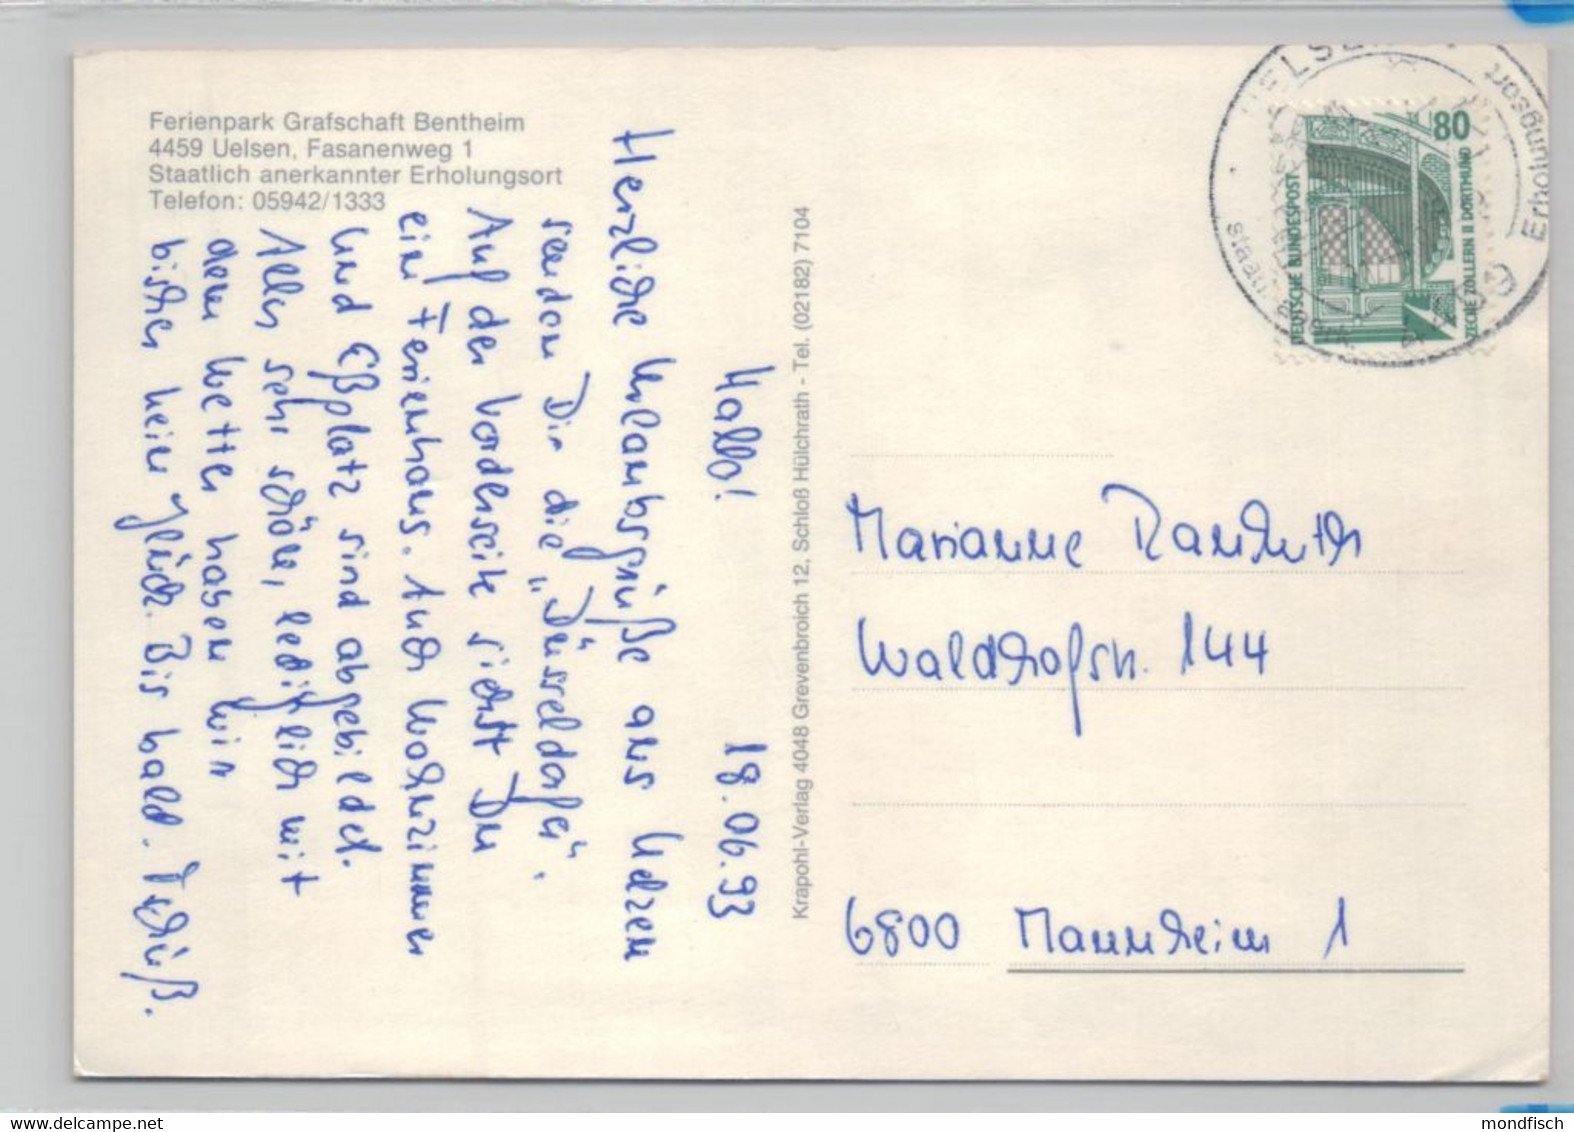 Ferienpark Grafschaft Bentheim
4459 Uelsen, Fasanenweg 1
Staatlich anerkannter Erholungsort
Telefon: 05942/1333
Hallo! 18.06.93
Herzliche Urlaubsgrüße aus Uelzen
senden Dir die „Düsseldorfer“.
Auf der Vorderseite siehst Du
ein Ferienhaus. Auch Wohnzimmer
und Eßplatz sind abgebildet.
Alles sehr schön, lediglich mit
dem Wetter haben wir
bisher kein Glück. Bis bald. Tschüß.
Krapohl-Verlag 4048 Grevenbroich 12, Schloß Hülchrath - Tel. (02182) 7104
80
DEUTSCHE BUNDESPOST
ZECHE ZOLLERN II DORTMUND
Erholungsort
Marianne
Waldhofstr. 144
6800 Mannheim 1
mondfisch